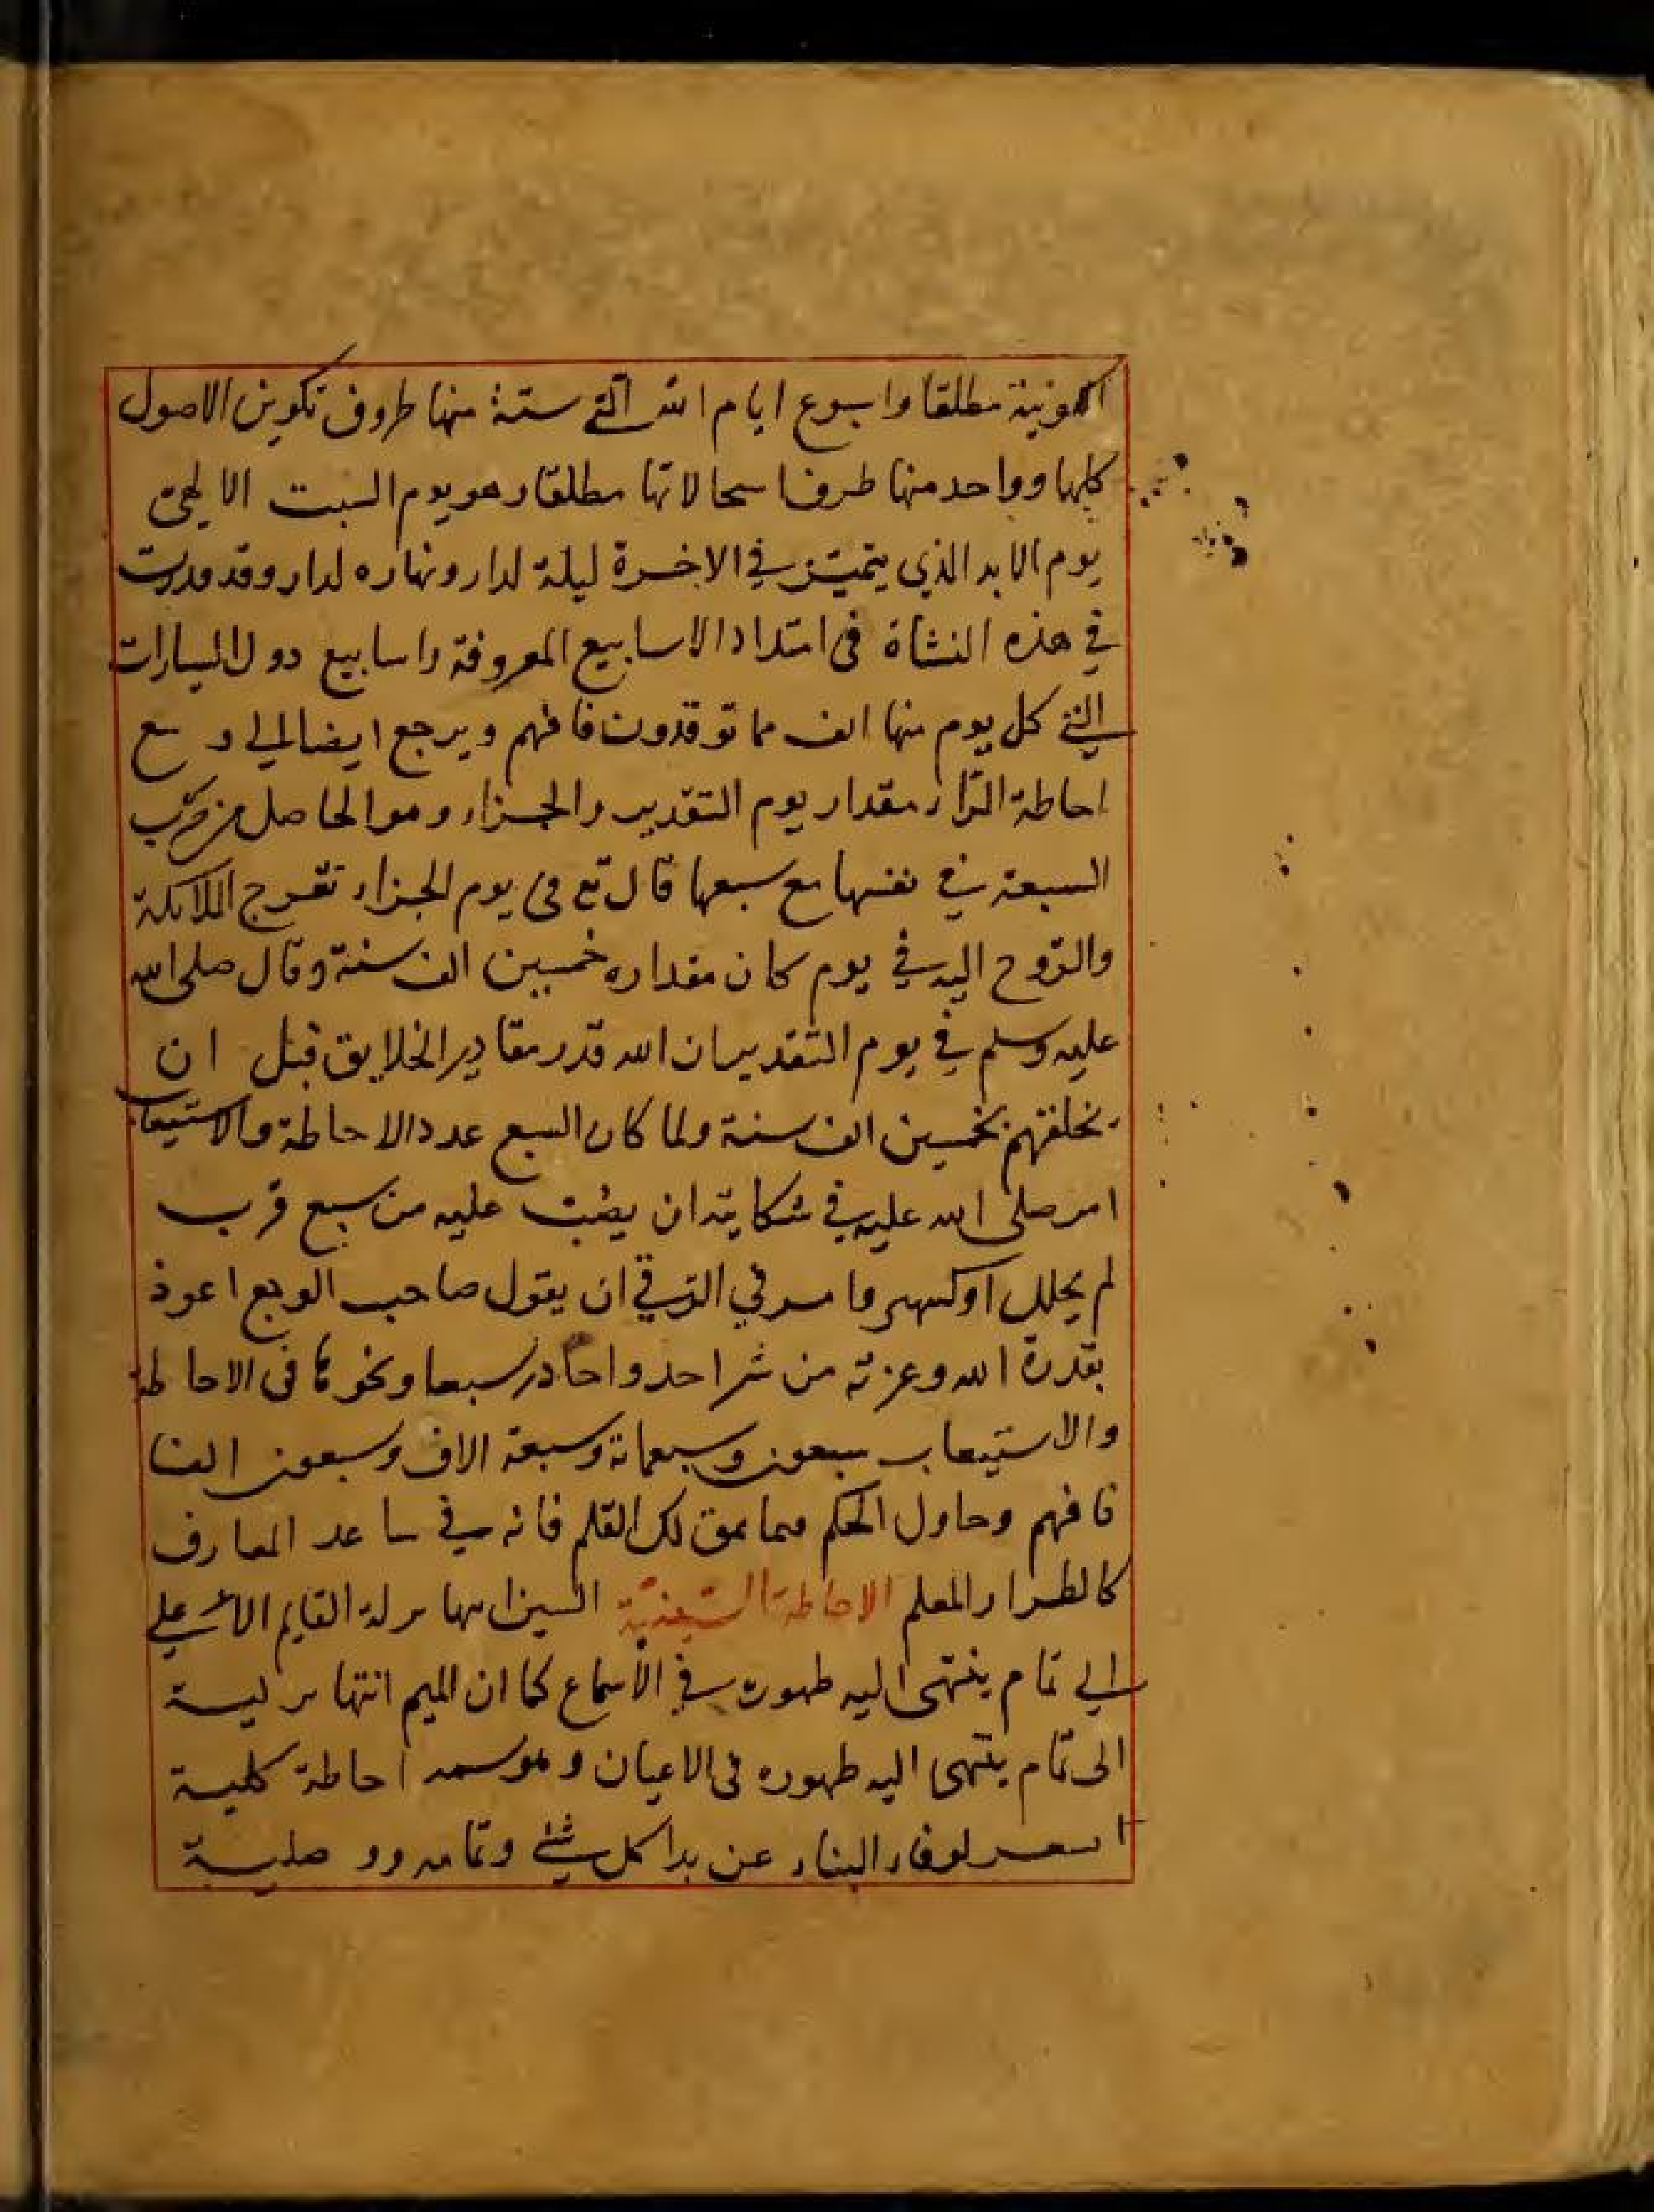 الكونية مطلقا واسبوع ايام الله التي ستة منها ظروف تكوين الاصول
كلها وواحد منها ظرف استحالاتها مطلقا وهو يوم السبت الالهى
يوم الابد الذي يتميز في الاخرة ليلة لدار ونهاره لدار وقد مدت
في هذه النشاة فى امتداد الاسابيع المعروفة واسابيع دول السيارات
التي كل يوم منها الف مما توقدون فافهم ويرجع ايضا الى و سع
احاطة الزاء مقدار يوم التقدير والجزاء وهو الحاصل من ضرب
السبعة في نفسها مع سبعها قال تع فى يوم الجزاء تعرج الملائكة
والروح اليه في يوم كان مقداره خمسين الف سنة وقال صلى الله
عليه وسلم في يوم التقدير ان الله قدر مقادير الخلايق قبل ان
يخلقهم بخمسين الف سنة ولما كان السبع عدد الاحاطة والاستيعاب
امر صلى الله عليه في شكايته ان يصب عليه من سبع قرب
لم يحلل اوكيتهن وامر في الرقى ان يقول صاحب الوجع اعوذ
بقدرة الله وعزته من شر اجد واحاذر سبعا ونحوها فى الاحاطة
والاستيعاب سبعون وسبعماية وسبعة الاف وسبعون الفا
فافهم وحاول الحكم مما نمق لك القلم فانه في ساعد المعارف
كالطراز المعلم الاحاطة السينية السين القايم الا على
الي تمام ينتهى اليه ظهوره في الاسماع كما ان الميم انتها
الى تمام ينتهى اليه ظهوره فى الاعيان وهو احاطة كلية
لوفاء البناء عن بدا كل شئ وتمامه